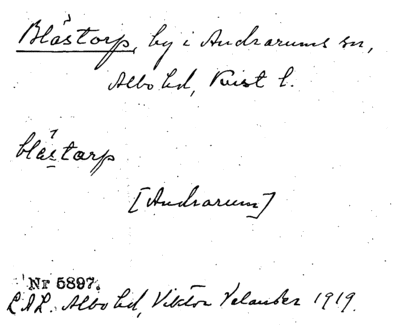 Blåstorp, by i Andrarums sn,
Albo hd, Krist l.
blåstarp
[Andrarum]
Nr 5897.
L.A.L. Albo hd, Viktor Velander 1919.